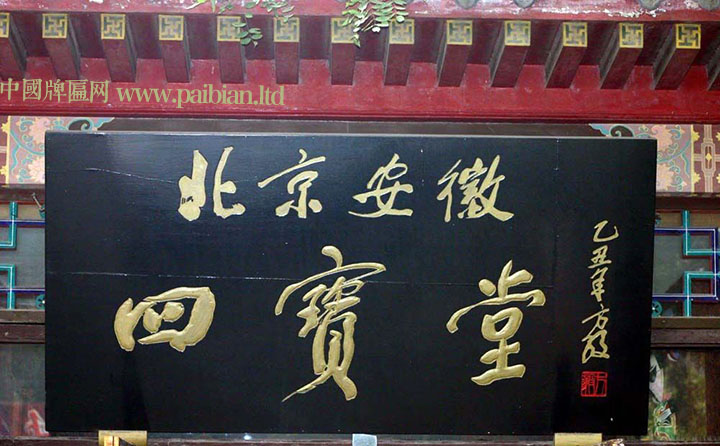 中國牌匾网 www.paibian.ltd
北京安徽
四寶堂
乙丑年方毅